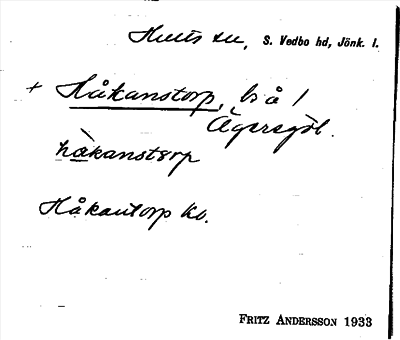 Hults sn, S. Vedbo hd, Jönk. l.
+ Håkanstorp, by å /
Ägersgöl.
hàkanstorp
Håkantorp Kb.
FRITZ ANDERSSON 1933